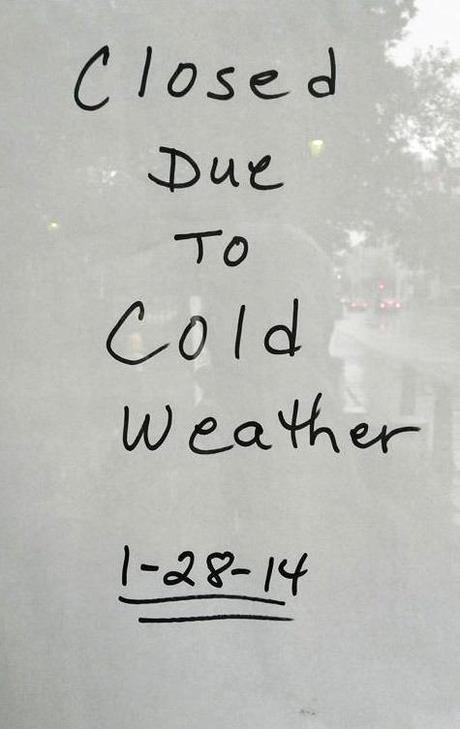 Closed
Due
To
Cold
Weather
1-28-14